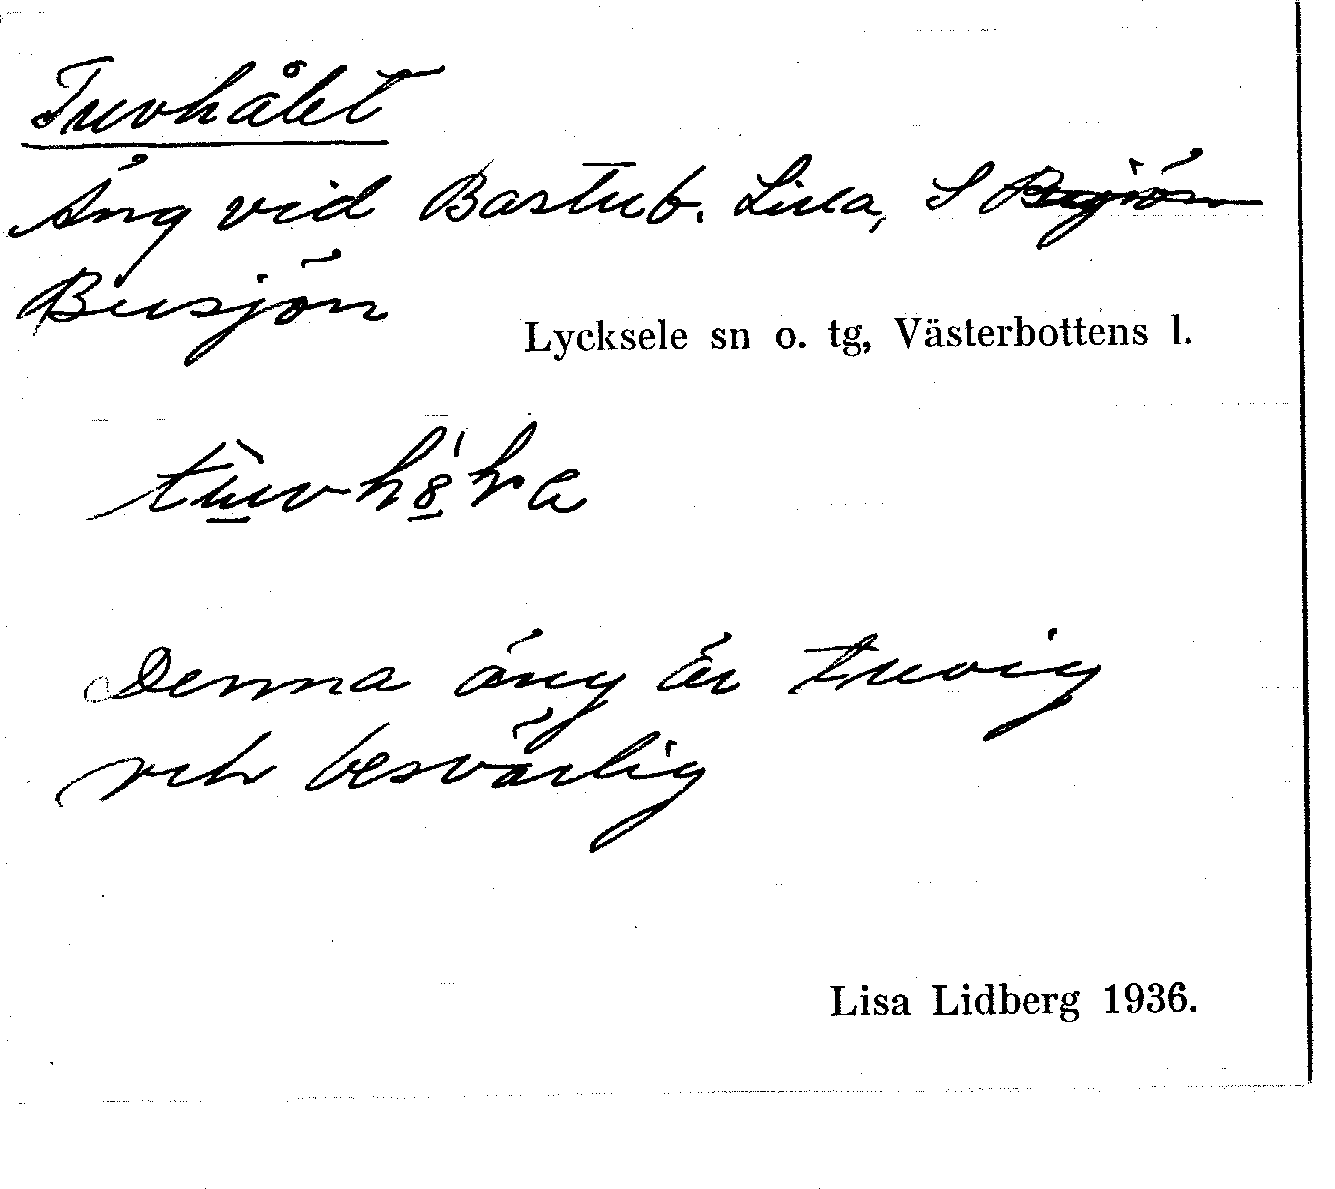 Tuvhålet
Äng vid Bastub. Lilla, S
Busjön
Lycksele sn o. tg, Västerbottens l.
Denna äng är tuvig
och besvärlig
Lisa Lidberg 1936.